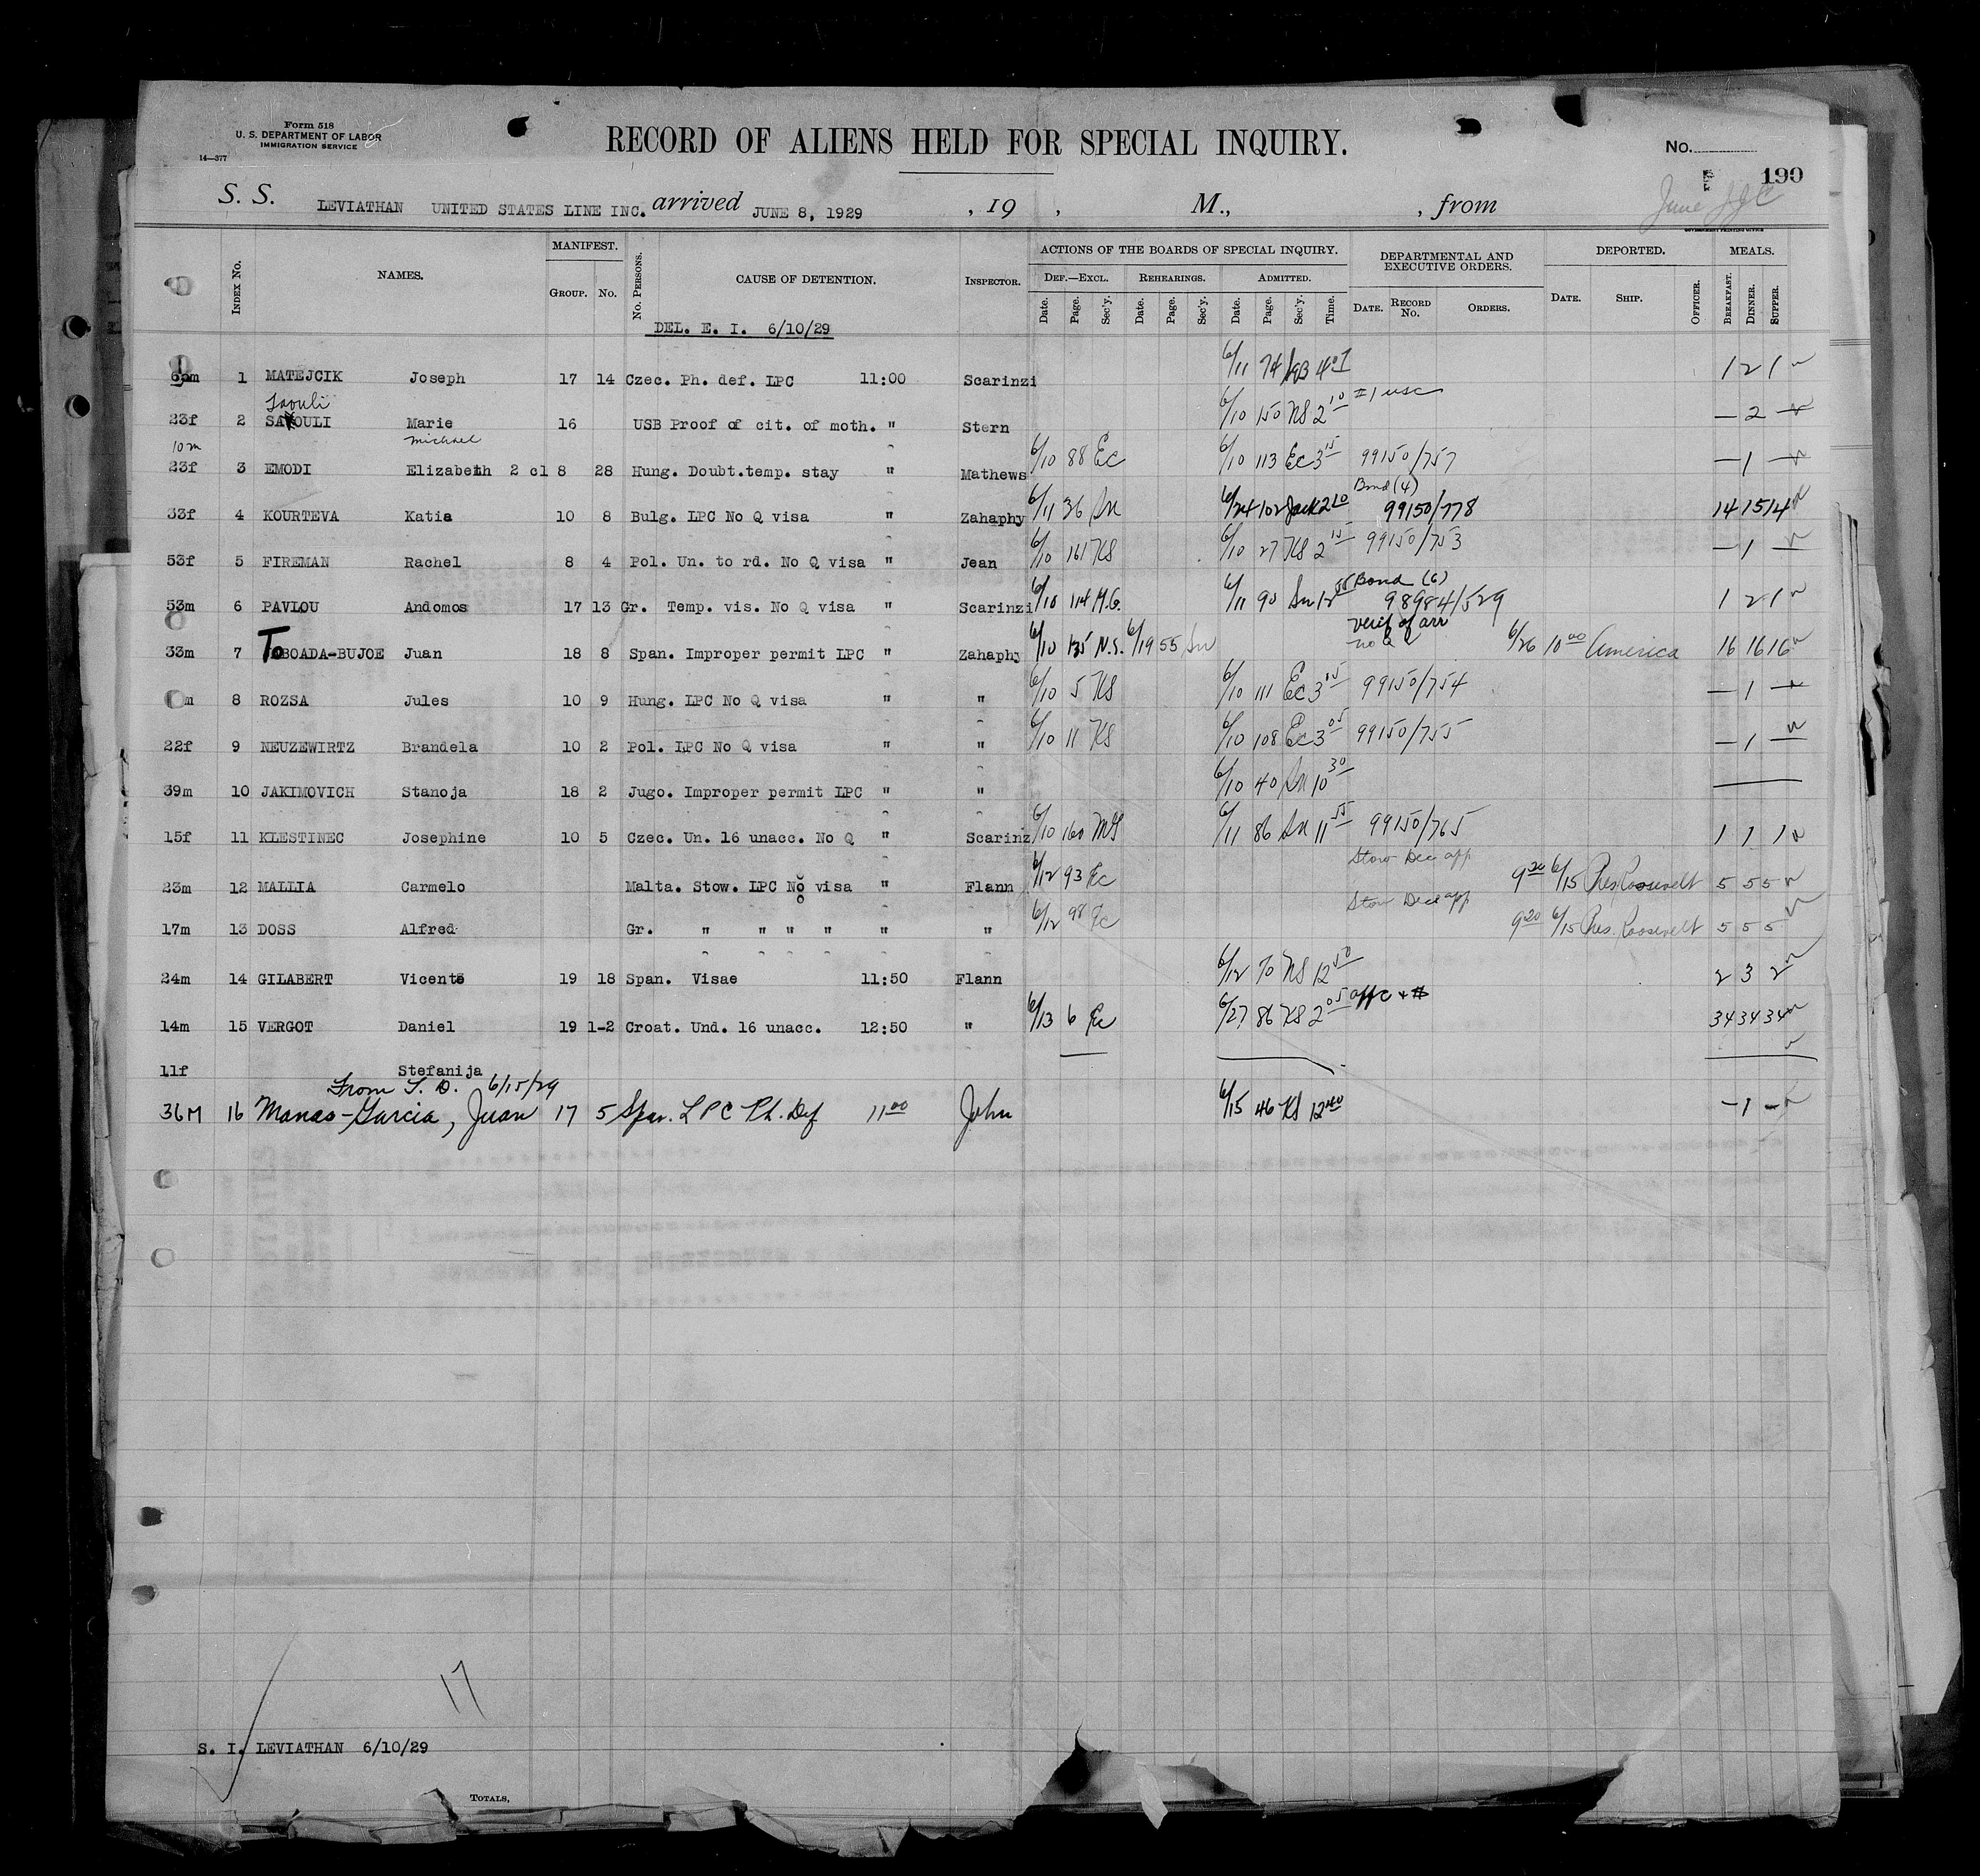 Form 518
U. S. DEPARTMENT OF LABOR
IMMIGRATION SERVICE
14—377
RECORD OF ALIENS HELD FOR SPECIAL INQUIRY.
No.
190
S. S. LEVIATHAN UNITED STATES LINE INC. arrived JUNE 8, 1929 , 19 , M., , from
June
GOVERNMENT PRINTING OFFICE
Index No. NAMES. MANIFEST. No. Persons. CAUSE OF DETENTION. Inspector. ACTIONS OF THE BOARDS OF SPECIAL INQUIRY. DEPARTMENTAL AND EXECUTIVE ORDERS. DEPORTED. MEALS.
Group. No. Def.—Excl. Rehearings. Admitted. Date. Record No. Orders. Date. Ship. Officer. Breakfast. Dinner. Supper.
Date. Page. Sec'y. Date. Page. Sec'y. Date. Page. Sec'y. Time.
DEL. E. I. 6/10/29
1 MATEJCIK Joseph 17 14 Czec. Ph. def. LPC 11:00 Scarinzi 6/11 74 1 2 1
Saouli
23f 2 Marie 16 USB Proof of cit. of moth. " Stern 6/10 150 NS 2 10 - 2 -
10m Michael
23f 3 EMODI Elizabeth 2 cl 8 28 Hung. Doubt.temp. stay " Mathews 6/10 88 Ec 6/10 113 Ec 3 15 99150/757 - 1 -
Bond (4)
33f 4 KOURTEVA Katia 10 8 Bulg. LPC No Q visa " Zahaphy 6/11 36 Sn 6/24 102 Jack 2 10 99150/778 14 15 14
53f 5 FIREMAN Rachel 8 4 Pol. Un. to rd. No Q visa " Jean 6/10 161 KS 6/10 27 KS 2 15 99150/753 - 1 -
Bond (6)
53m 6 PAVLOU Andomos 17 13 Gr. Temp. vis. No Q visa " Scarinzi 6/10 114 M.G. 6/11 90 Sn 12 55 98984/529 1 2 1
verif of arr
33m 7 ToBOADA-BUJOE Juan 18 8 Span. Improper permit LPC " Zahaphy 6/10 135 N.S. 6/19 55 Sn no Q 6/26 10 00 America 16 16 16
m 8 ROZSA Jules 10 9 Hung. LPC No Q visa " " 6/10 5 KS 6/10 111 Ec 3 15 99150/754 - 1 -
22f 9 NEUZEWIRTZ Brandela 10 2 Pol. LPC No Q visa " " 6/10 11 KS 6/10 108 Ec 3 05 99150/755 - 1 -
39m 10 JAKIMOVICH Stanoja 18 2 Jugo. Improper permit LPC " " 6/10 40 Sn 10 30
15f 11 KLESTINEC Josephine 10 5 Czec. Un. 16 unacc. No Q " Scarinz 6/10 160 6/11 86 Sn 11 55 99150/765 1 1 1
Stow Dec app
23m 12 MALLIA Carmelo Malta. Stow. LPC No visa " Flann 6/12 93 Ec 9 20 6/15 Pres Roosevelt 5 5 5
Stow Dec app
17m 13 DOSS Alfred Gr. " " " " " " 6/12 98 Ec 9 20 6/15 Pres. Roosevelt 5 5 5
24m 14 GILABERT Vicente 19 18 Span. Visae 11:50 Flann 6/12 70 NS 12 50 2 3 2
14m 15 VERGOT Daniel 19 1-2 Croat. Und. 16 unacc. 12:50 " 6/13 6 Ec 6/27 86 KS 2 05 34 34 34
11f Stefanija
From S. D. 6/15/29
36M 16 Manao-Garcia, Juan 17 5 Span. LPC Ph. Def 11 00 John 6/15 46 KS 12 40 - 1 -
17
S. I. LEVIATHAN 6/10/29
Totals,